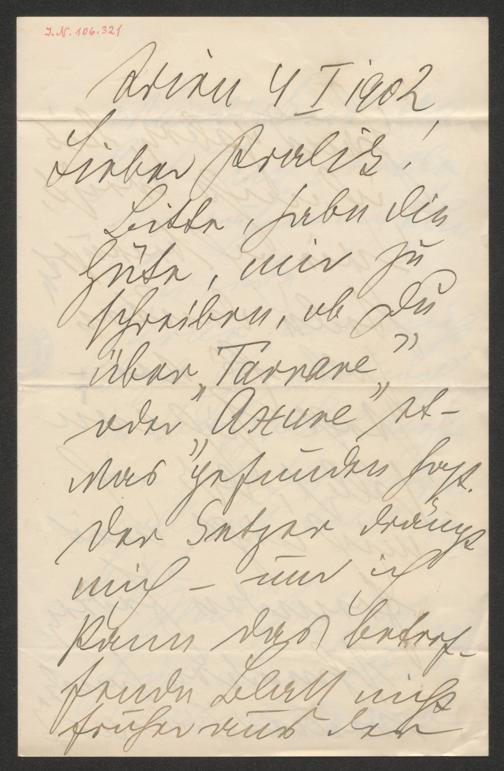 I.N. 106.321
Wien 4 I 1902
Lieber Kralik!
Bitte, habe die
Güte, mir zu
schreiben, ob Du
über „Tarrare”
oder „Axure” et-
was gefunden hast.
Der Setzer drängt
mich – und ich
kann das betref-
fende Blatt nicht
früher aus der